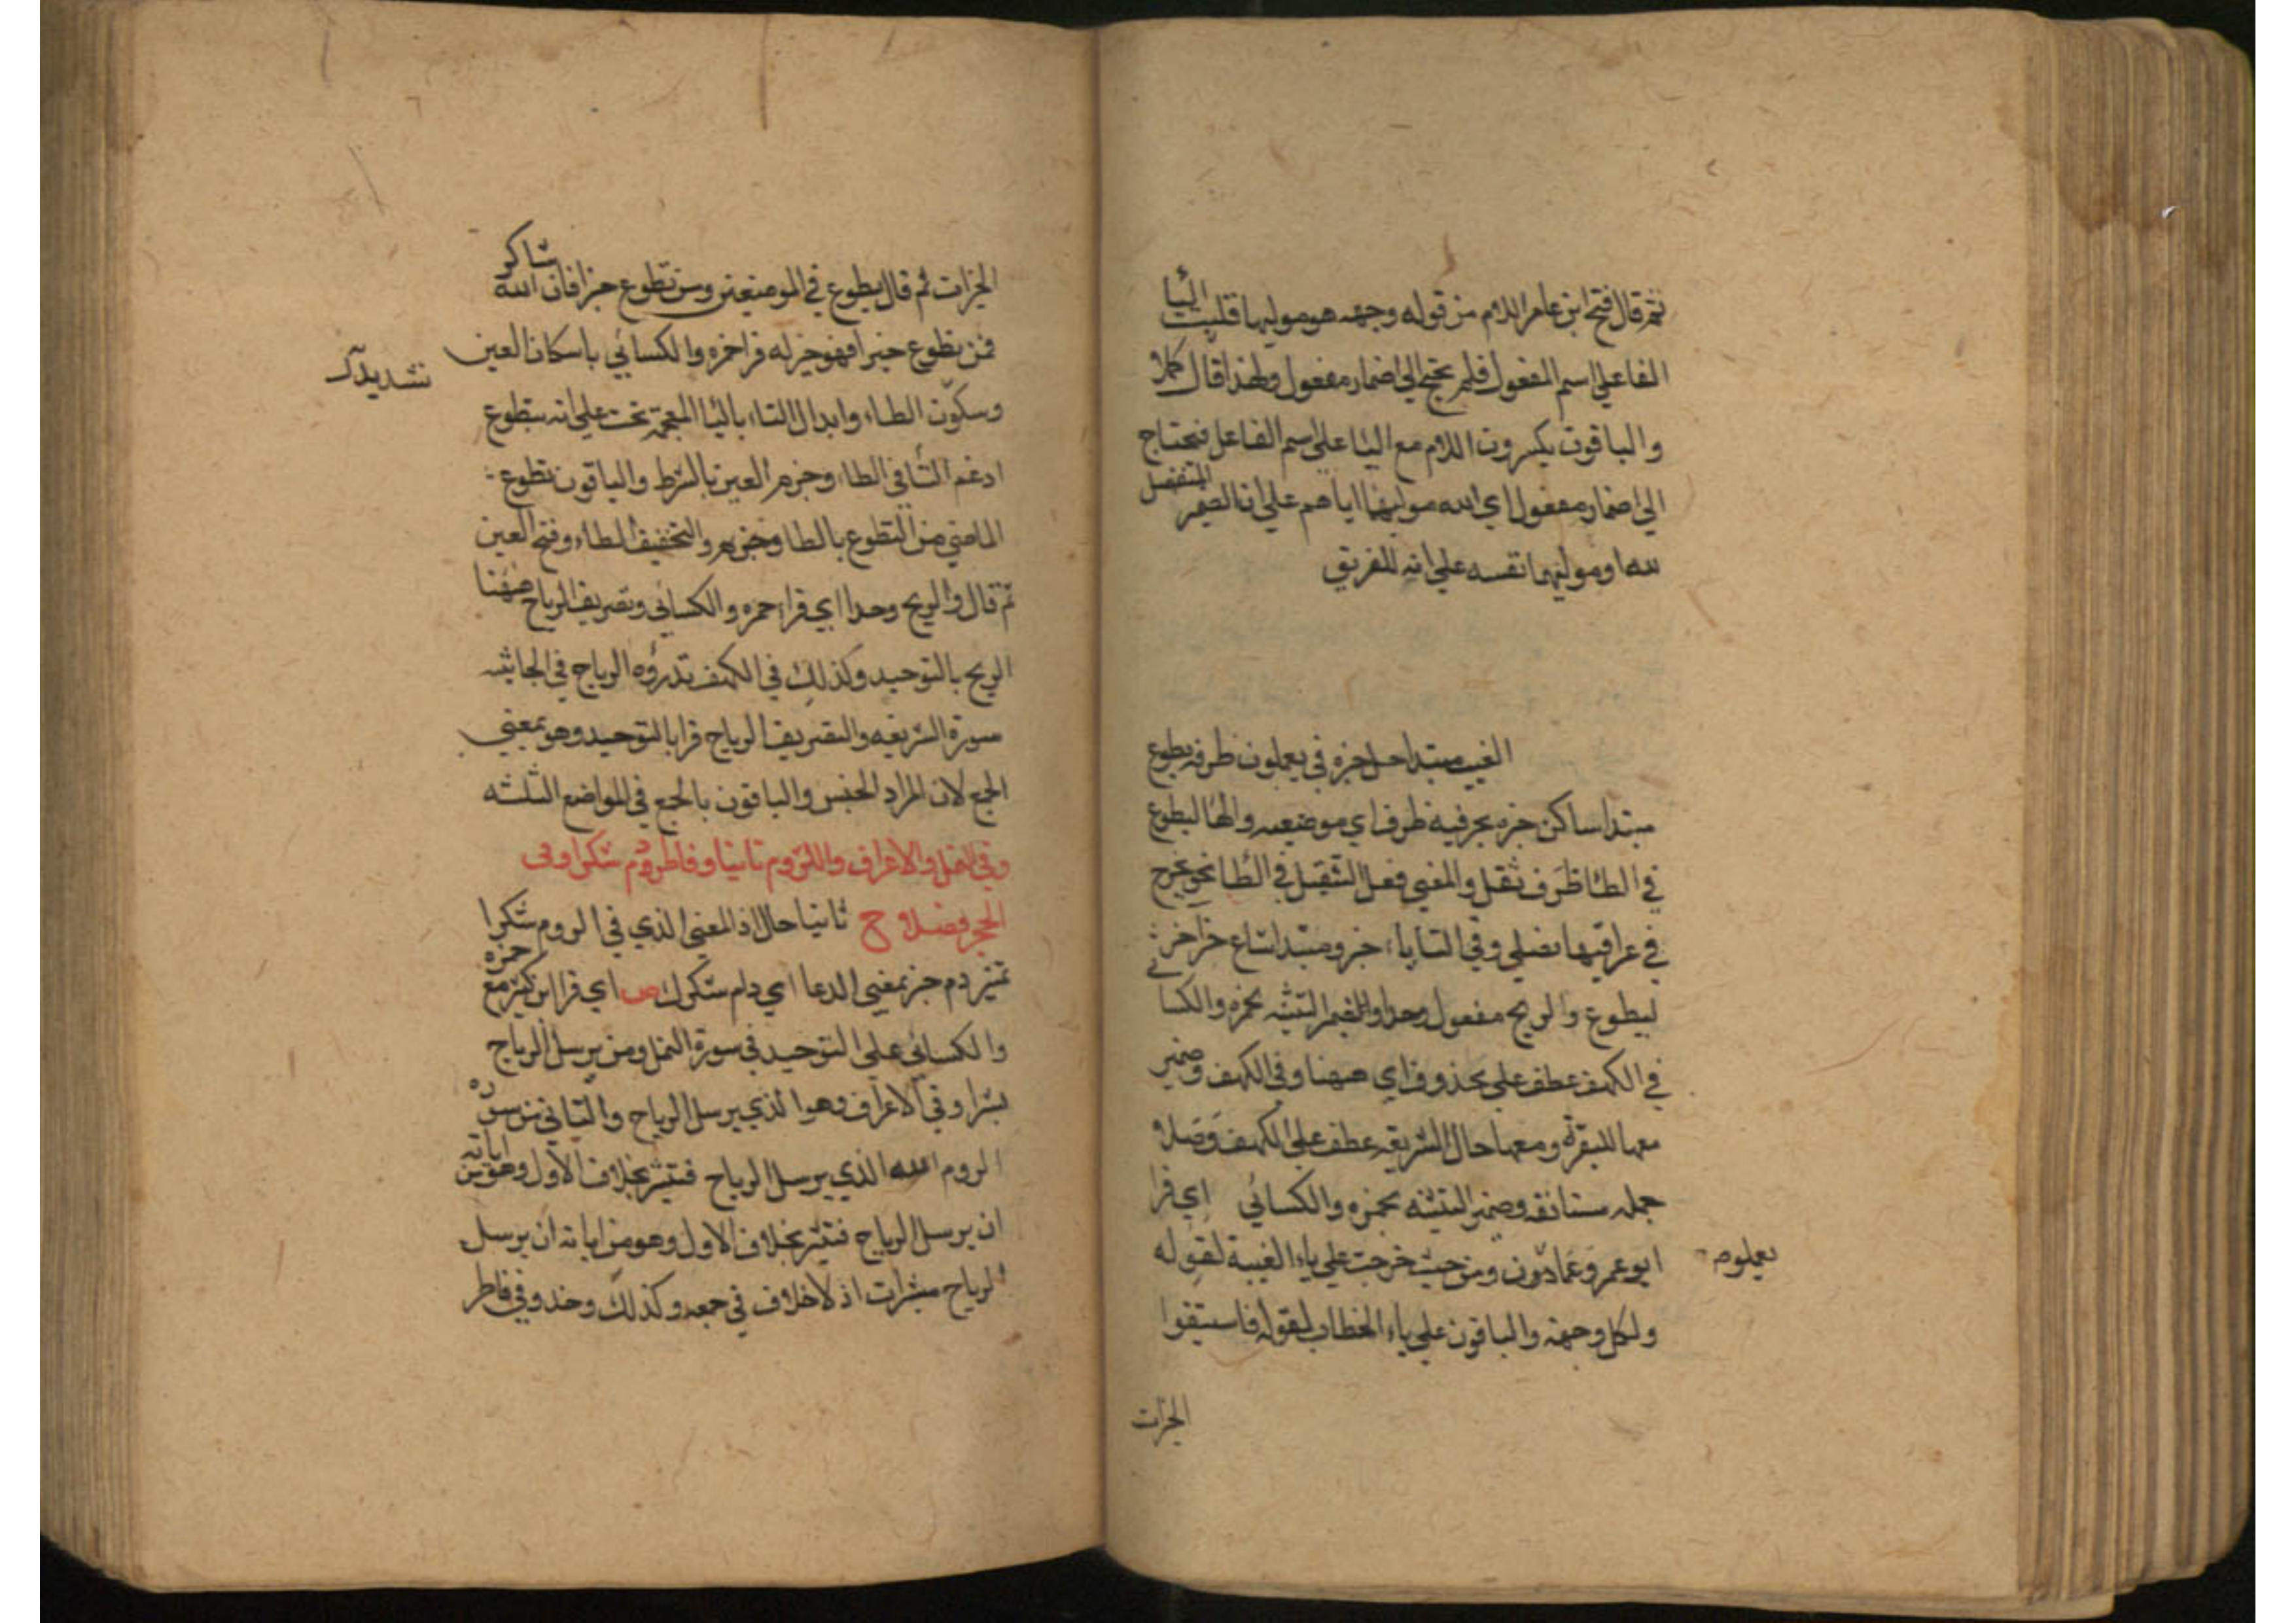 ثم قال فتح ابن عامر اللام من قوله وجهه هو موليها فقلبت اليا
الفا علي اسم المفعول فلم يحتج الي اضمار مفعول ولهذا قال كملا
والباقون يكسرون اللام مع اليا علي اسم الفاعل فيحتاج
الي اضمار مفعول اي الله موليها اياهم علي ان الضمير المنفصل
لله او موليها نفسه علي انه للفريق
الغيب مبتدا حل خبره في يعملون ظرفه يطوع
مبتدا ساكن خبره بحرفيه ظرف اي موضعيه والها ليطوع
في الطا ظرف ثقل والمعني فعل التثقيل في الطا نحو يجرح
في عراقيبها نصلي وفي التا ياء خبر ومبتدا شاع خبر اخر
ليطوع والريح مفعول وحدا والضمير التثنيه لحمزه والكسا ئي
في الكهف عطف علي محذوف اي ههنا وفي الكهف وضمير
معها للبقرة ومعها حال الشريعه عطف علي الكهف وصلا
جمله مستانفه وضمير التثنيه لحمزه والكسائي اي قرا
ابو عمرو عما يعملون ومن حيث خرجت علي ياء الغيبة لقوله
يعملون
ولكل وجهة والباقون علي ياء الخطاب لقوله فاستبقوا
الخيرات
الخيرات ثم قال يطوع في الموضيعين ومن تطوع خيرا فان الله شاكر
فمن تطوع خيرا فهو خير له قرا حمزه والكسائي باسكان العين
تشديد
وسكون الطاء وابدال التاء باليا المعجمة تحت علي انه يتطوع
ادغم التا في الطاء وجزم العين بالشرط والباقون تطوع
الماضي من التطوع بالطا وجزم والتخفيف الطاء وفتح العين
ثم قال والريح وحدا اي قرا حمزه والكسائي وتصريف الرياح ههنا
الريح بالتوحيد وكذلك في الكهف تذروه الرياح في الجاثيه
سورة الشريعه والتصريف الرياح قرا بالتوحيد وهو بمعني
الجمع لان المراد الجنس والباقون بالجمع في المواضع الثلثه
وفي النمل والاعراف والروم ثانيا وفاطر دم شكرا وفي
الحجر فصلا ح ثانيا حال اذ المعني الذي في الروم شكرا
تميز دم خبر بمعني الدعا اي دام شكرك ص اي قرا ابن كثير مع حمزه
والكسائي علي التوحيد في سورة النمل ومن يرسل الرياح
بشرا وفي الاعراف وهو الذي يرسل الرياح والثاني من سوره
الروم الله الذي يرسل الرياح فتثير بخلاف الاول وهو من اياته
ان يرسل الرياح فتثير بخلاف الاول وهو من اياته ان يرسل
الرياح مبشرات اذ لا خلاف في جمعه وكذلك وحد وفي فاطر